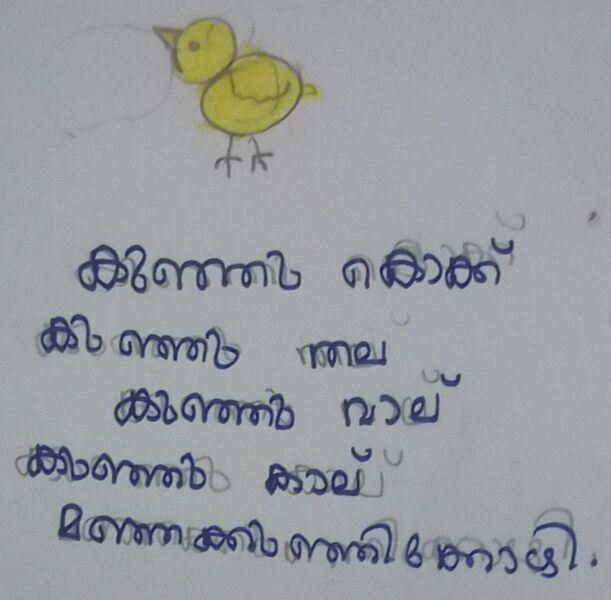 കുഞ്ഞു കൊക്ക്
കുഞ്ഞു തല
കുഞ്ഞു വാല്
കുഞ്ഞു കാല്
മഞ്ഞക്കുഞ്ഞിക്കോഴി.